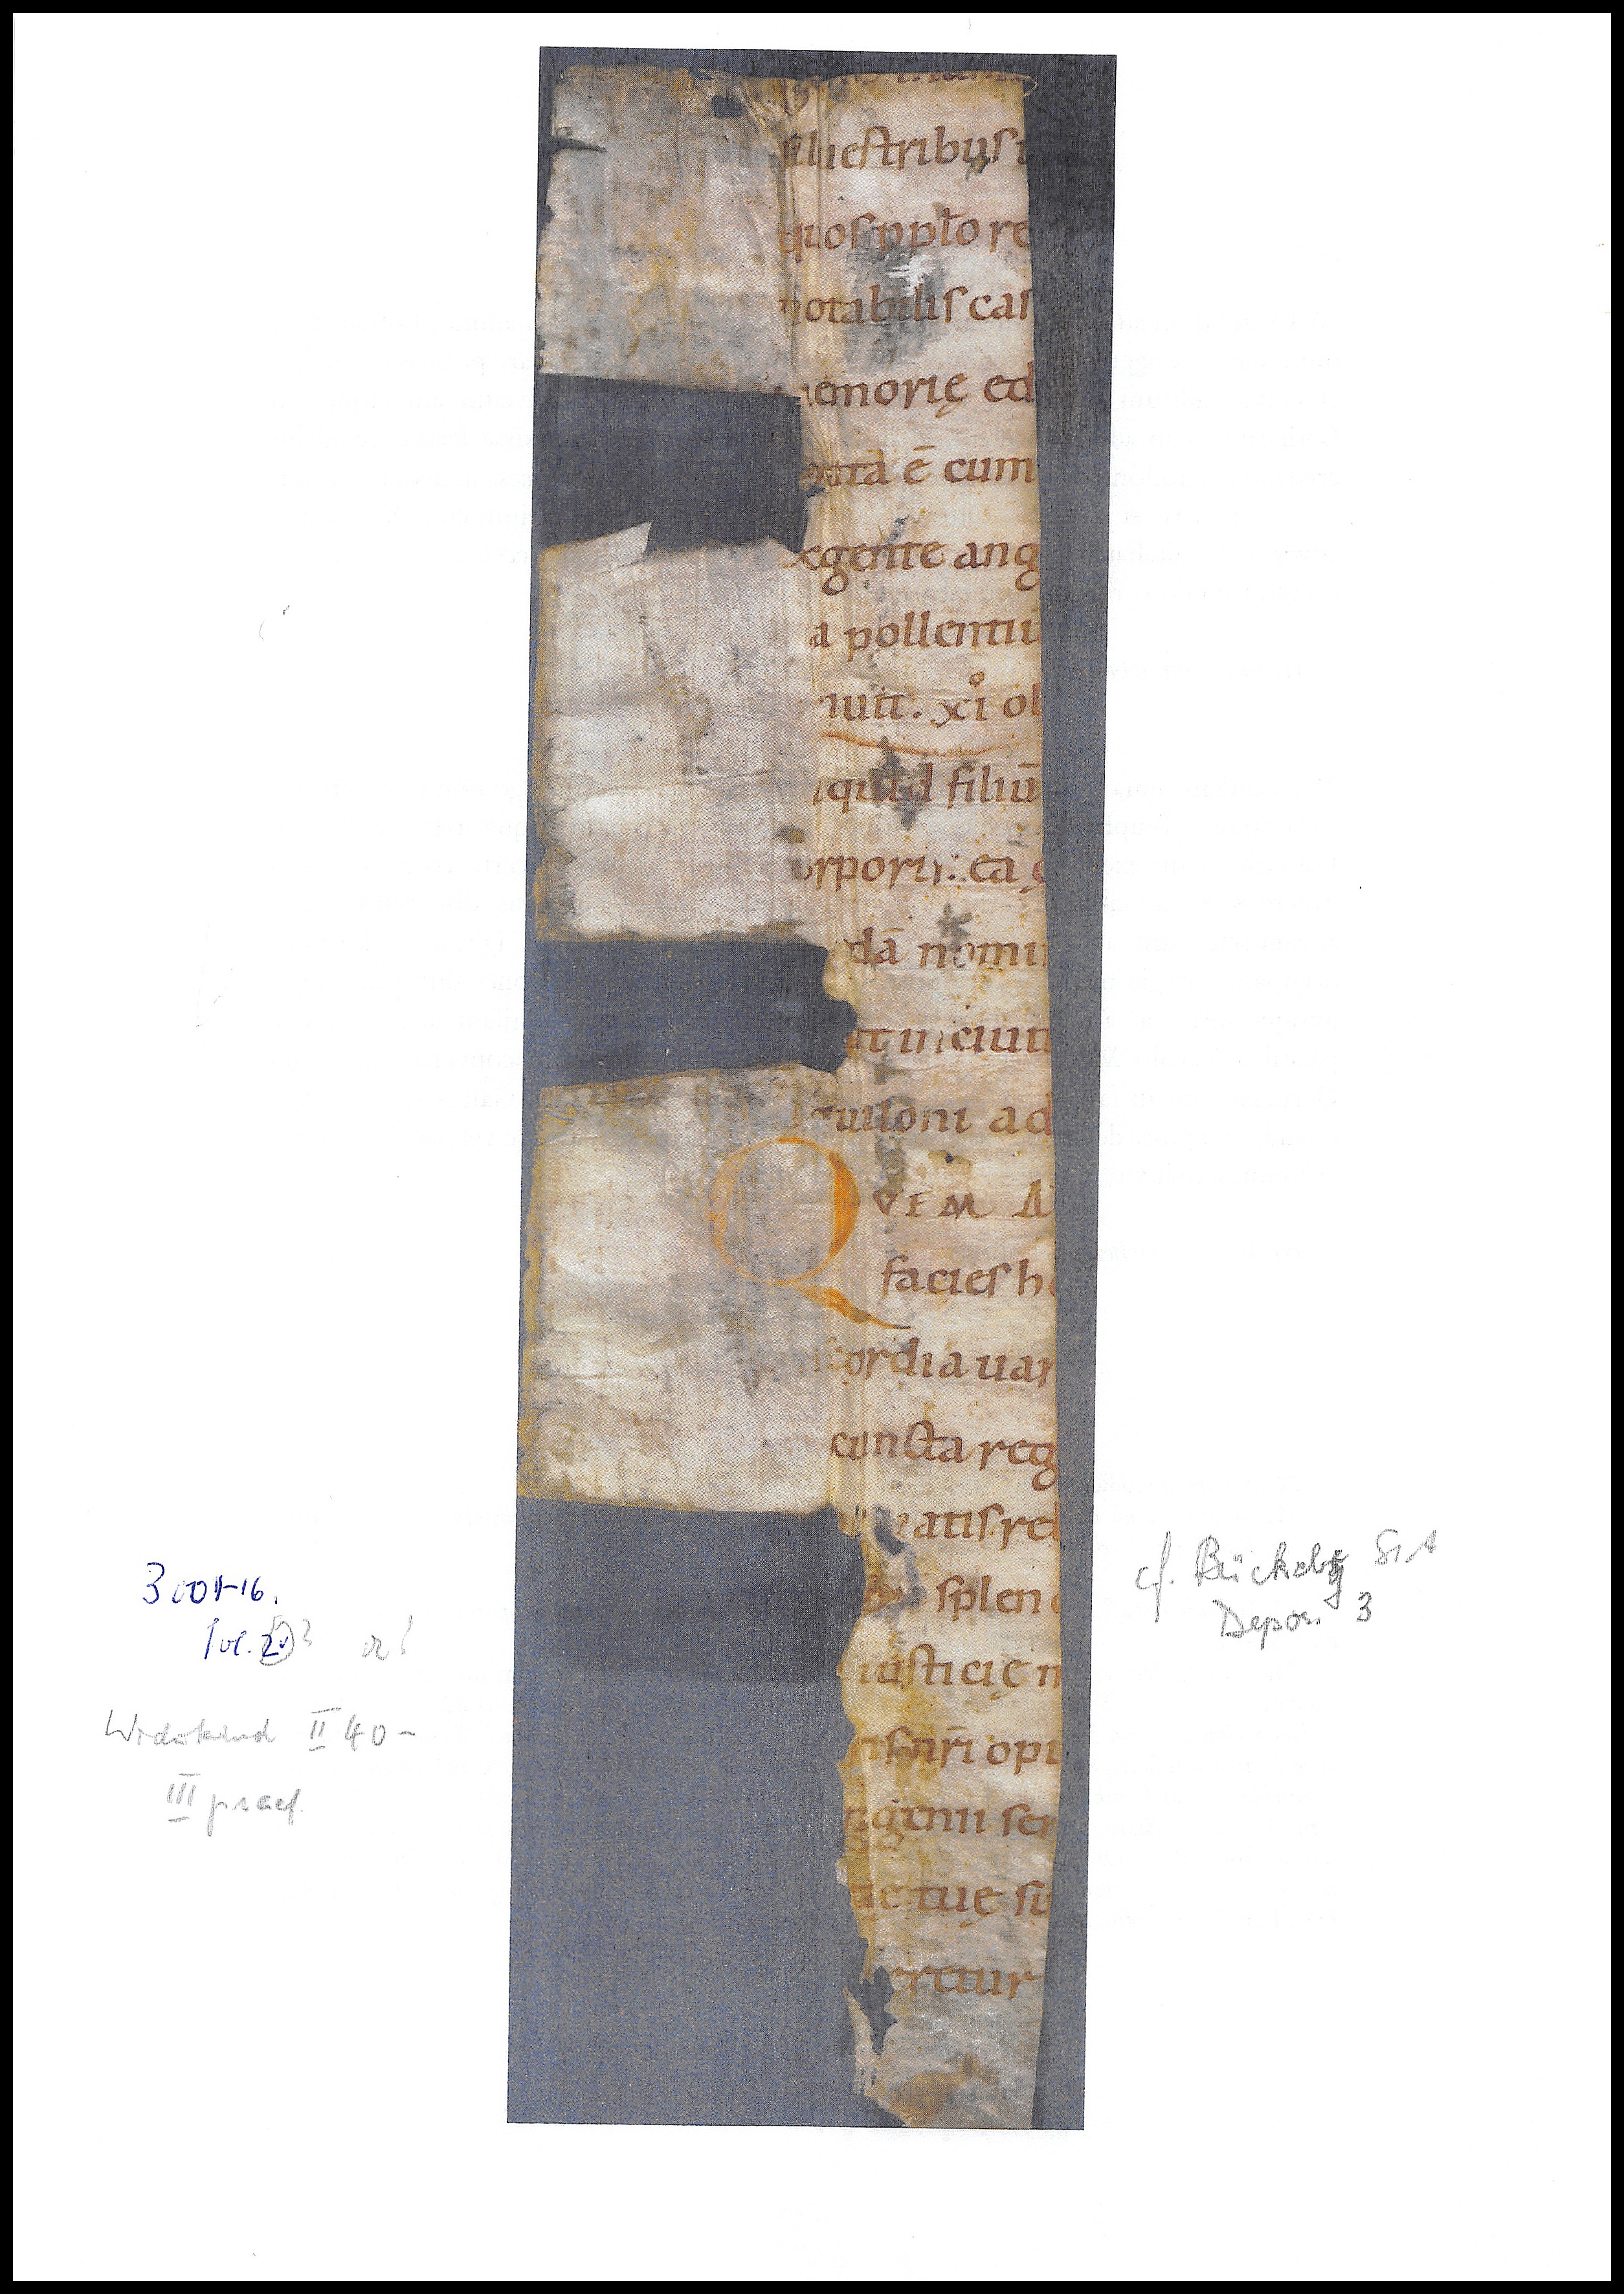 siluestribus i
quos ppło re
notabilis cas
memorię ed
nata ē cum
ex gente ang
a pollentiū
iuit. xi ob
quid filiū
orporis: ea q
dā nomi
it in ciuit
quiloni ad
QVEM A
facies h
cordia uar
cuncta reg
atis reb
splen
iusticię n
is nr̄i opi
ngenii ser
ae tuę su
ertitur
3001-16.
fol. 2v? r!
Widukind II 40-
III praef.
cf. Bückebg StA
Depos. 3